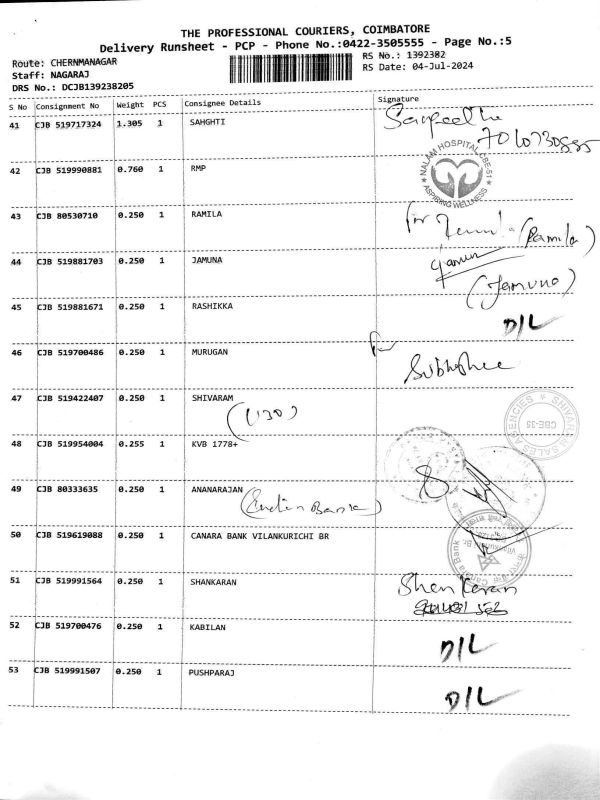 THE PROFESSIONAL COURIERS, COIMBATORE
Delivery Runsheet - PCP - Phone No.:0422-3505555 - Page No.:5
Route: CHERNMANAGAR
RS No.: 1392382
Staff: NAGARAJ
RS Date: 04-Jul-2024
DRS No.: DCJB139238205
S No Consignment No Weight PCS Consignee Details Signature
41 CJB 519717324 1.305 1 SAHGHTI
NALAM HOSPITAL CBE-51
ASPIRING WELLNESS
42 CJB 519990881 0.760 1 RMP
43 CJB 80530710 0.250 1 RAMILA
for (Ramila)
44 CJB 519881703 0.250 1 JAMUNA
(Jamuna)
45 CJB 519881671 0.250 1 RASHIKKA
D/L
46 CJB 519700486 0.250 1 MURUGAN
for
47 CJB 519422407 0.250 1 SHIVARAM
(U30)
SHIVARAM SALES AGENCIES
CBE-35
48 CJB 519954004 0.255 1 KVB 1778+
49 CJB 80333635 0.250 1 ANANARAJAN
(Indian Bank)
50 CJB 519619088 0.250 1 CANARA BANK VILANKURICHI BR
Canara Bank
51 CJB 519991564 0.250 1 SHANKARAN
Shankaran
52 CJB 519700476 0.250 1 KABILAN
D/L
53 CJB 519991507 0.250 1 PUSHPARAJ
D/L